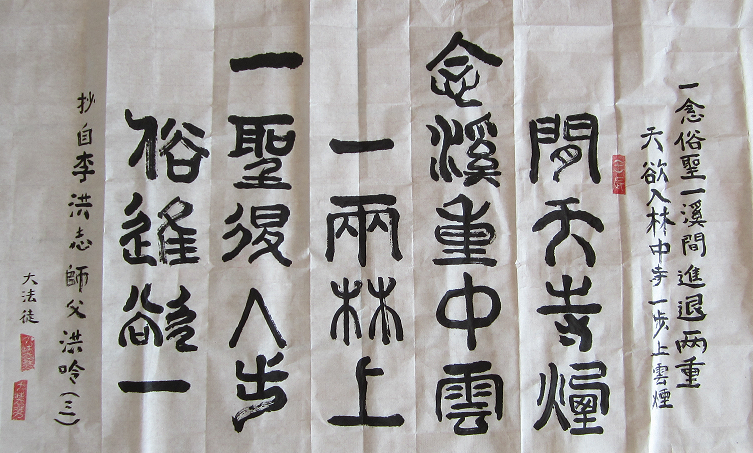 一念俗聖一溪間進退两重
天欲入林中寺一步上雲煙
間天寺煙
念溪重中雲
一兩林上
一聖退入步
俗進欲一
抄自李洪志師父洪吟（二）
大法徒